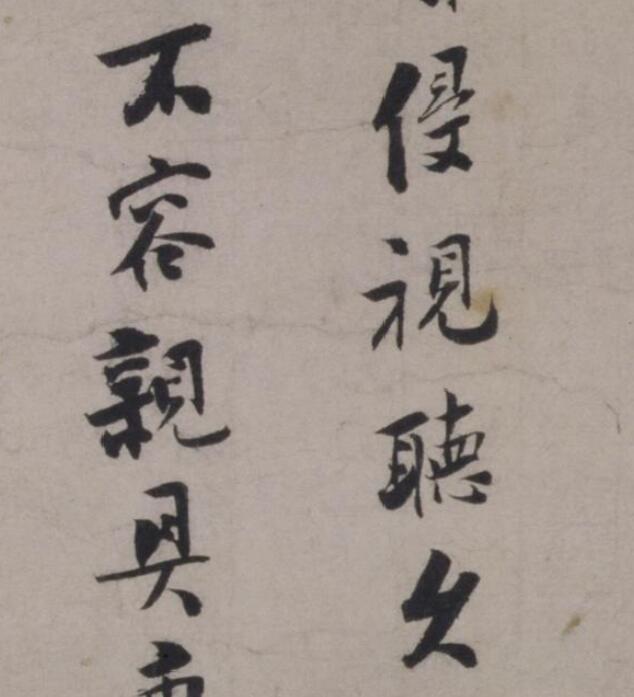 侵視聽久
不容親具